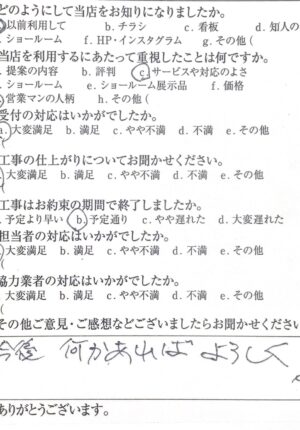 どのようにして当店をお知りになりましたか。
以前利用して b.チラシ c.看板 d.知人の
ショールーム f.HP・インスタグラム g.その他(
当店を利用するにあたって重視したことは何ですか。
.提案の内容 b.評判 c.サービスや対応のよさ
.ショールーム e.ショールーム展示品 f.価格
営業マンの人柄 h.その他(
受付の対応はいかがでしたか。
a.大変満足 b.満足 c.やや不満 d.不満 e.その他
(
工事の仕上がりについてお聞かせください。
.大変満足 b.満足 c.やや不満 d.不満 e.その他
(
工事はお約束の期間で終了しましたか。
.予定より早い b.予定通り c.やや遅れた d.大変遅れた
担当者の対応はいかがでしたか。
.大変満足 b.満足 c.やや不満 d.不満 e.その他
(
協力業者の対応はいかがでしたか。
.大変満足 b.満足 c.やや不満 d.不満 e.その他
(
その他ご意見・ご感想などございましたらお聞かせください
今後 何かあれば よろしく
ありがとうございます。